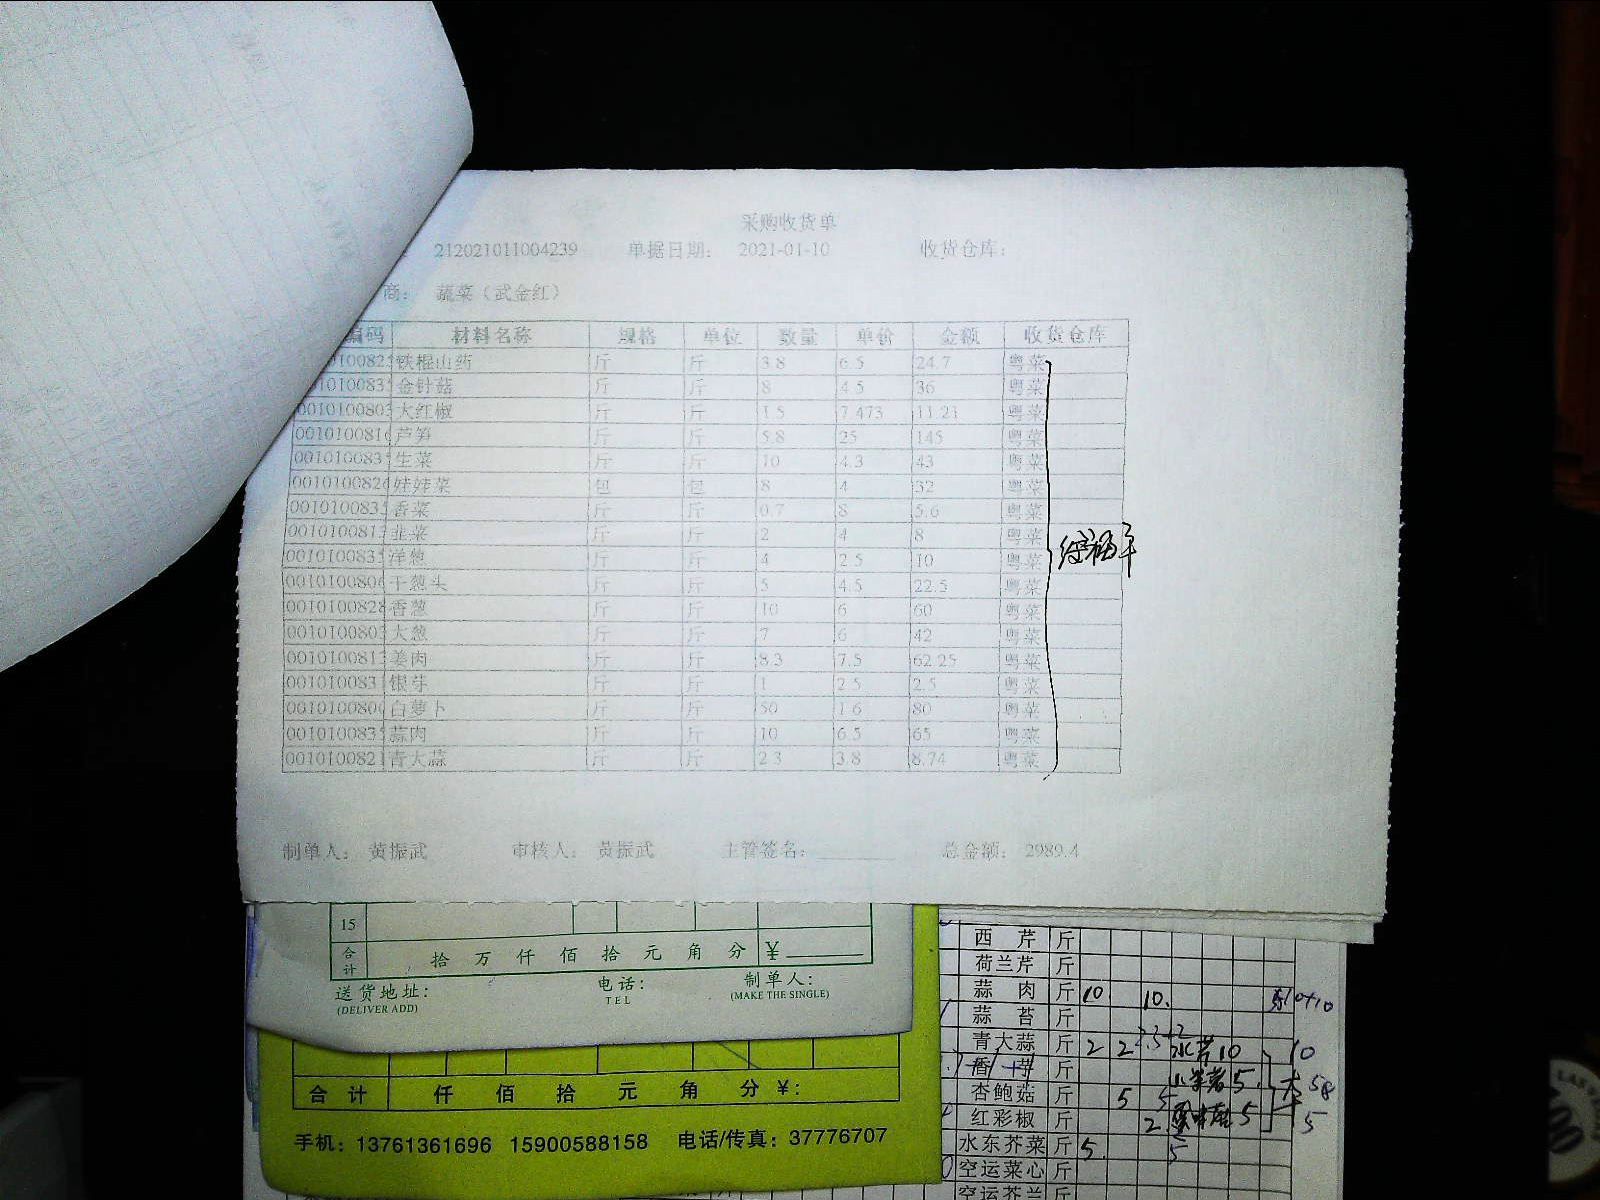 采购收货单
212021011004239 单据日期: 2021-01-10 收货仓库:
商: 蔬菜（武金红）
编码 材料名称 规格 单位 数量 单价 金额 收货仓库
0100823 铁棍山药 斤 斤 3.8 6.5 24.7 粤菜
010100835 金针菇 斤 斤 8 4.5 36 粤菜
0010100803 大红椒 斤 斤 1.5 7.473 11.21 粤菜
001010081 芦笋 斤 斤 5.8 25 145 粤菜
001010083 生菜 斤 斤 10 4.3 43 粤菜
001010082 娃娃菜 包 包 8 4 32 粤菜
001010083 香菜 斤 斤 0.7 8 5.6 粤菜
001010081 韭菜 斤 斤 2 4 8 粤菜
001010083 洋葱 斤 斤 4 2.5 10 粤菜
001010080 干葱头 斤 斤 5 4.5 22.5 粤菜
001010082 香葱 斤 斤 10 6 60 粤菜
001010080 大葱 斤 斤 7 6 42 粤菜
001010081 姜肉 斤 斤 8.3 7.5 62.25 粤菜
001010083 银芽 斤 斤 1 2.5 2.5 粤菜
001010080 白萝卜 斤 斤 50 1.6 80 粤菜
001010083 蒜肉 斤 斤 10 6.5 65 粤菜
001010082 青大蒜 斤 斤 2.3 3.8 8.74 粤菜
制单人: 黄振武 审核人: 黄振武 主管签名: 总金额: 2989.4
15
合计 拾 万 仟 佰 拾 元 角 分 ¥
送货地址: 电话: 制单人:
(DELIVER ADD) TEL (MAKE THE SINGLE)
合计 仟 佰 拾 元 角 分 ¥:
手机: 13761361696 15900588158 电话/传真: 37776707
西芹 斤
荷兰芹 斤
蒜肉 斤 10. 10. 10+10
蒜苔 斤
青大蒜 斤 2 2 2.3+2 水芹10 10
香芋 斤 5.
杏鲍菇 斤 5 5 58
红彩椒 斤 2 5 5
水东芥菜 斤 5. 5
空运菜心 斤
空运芥兰 斤